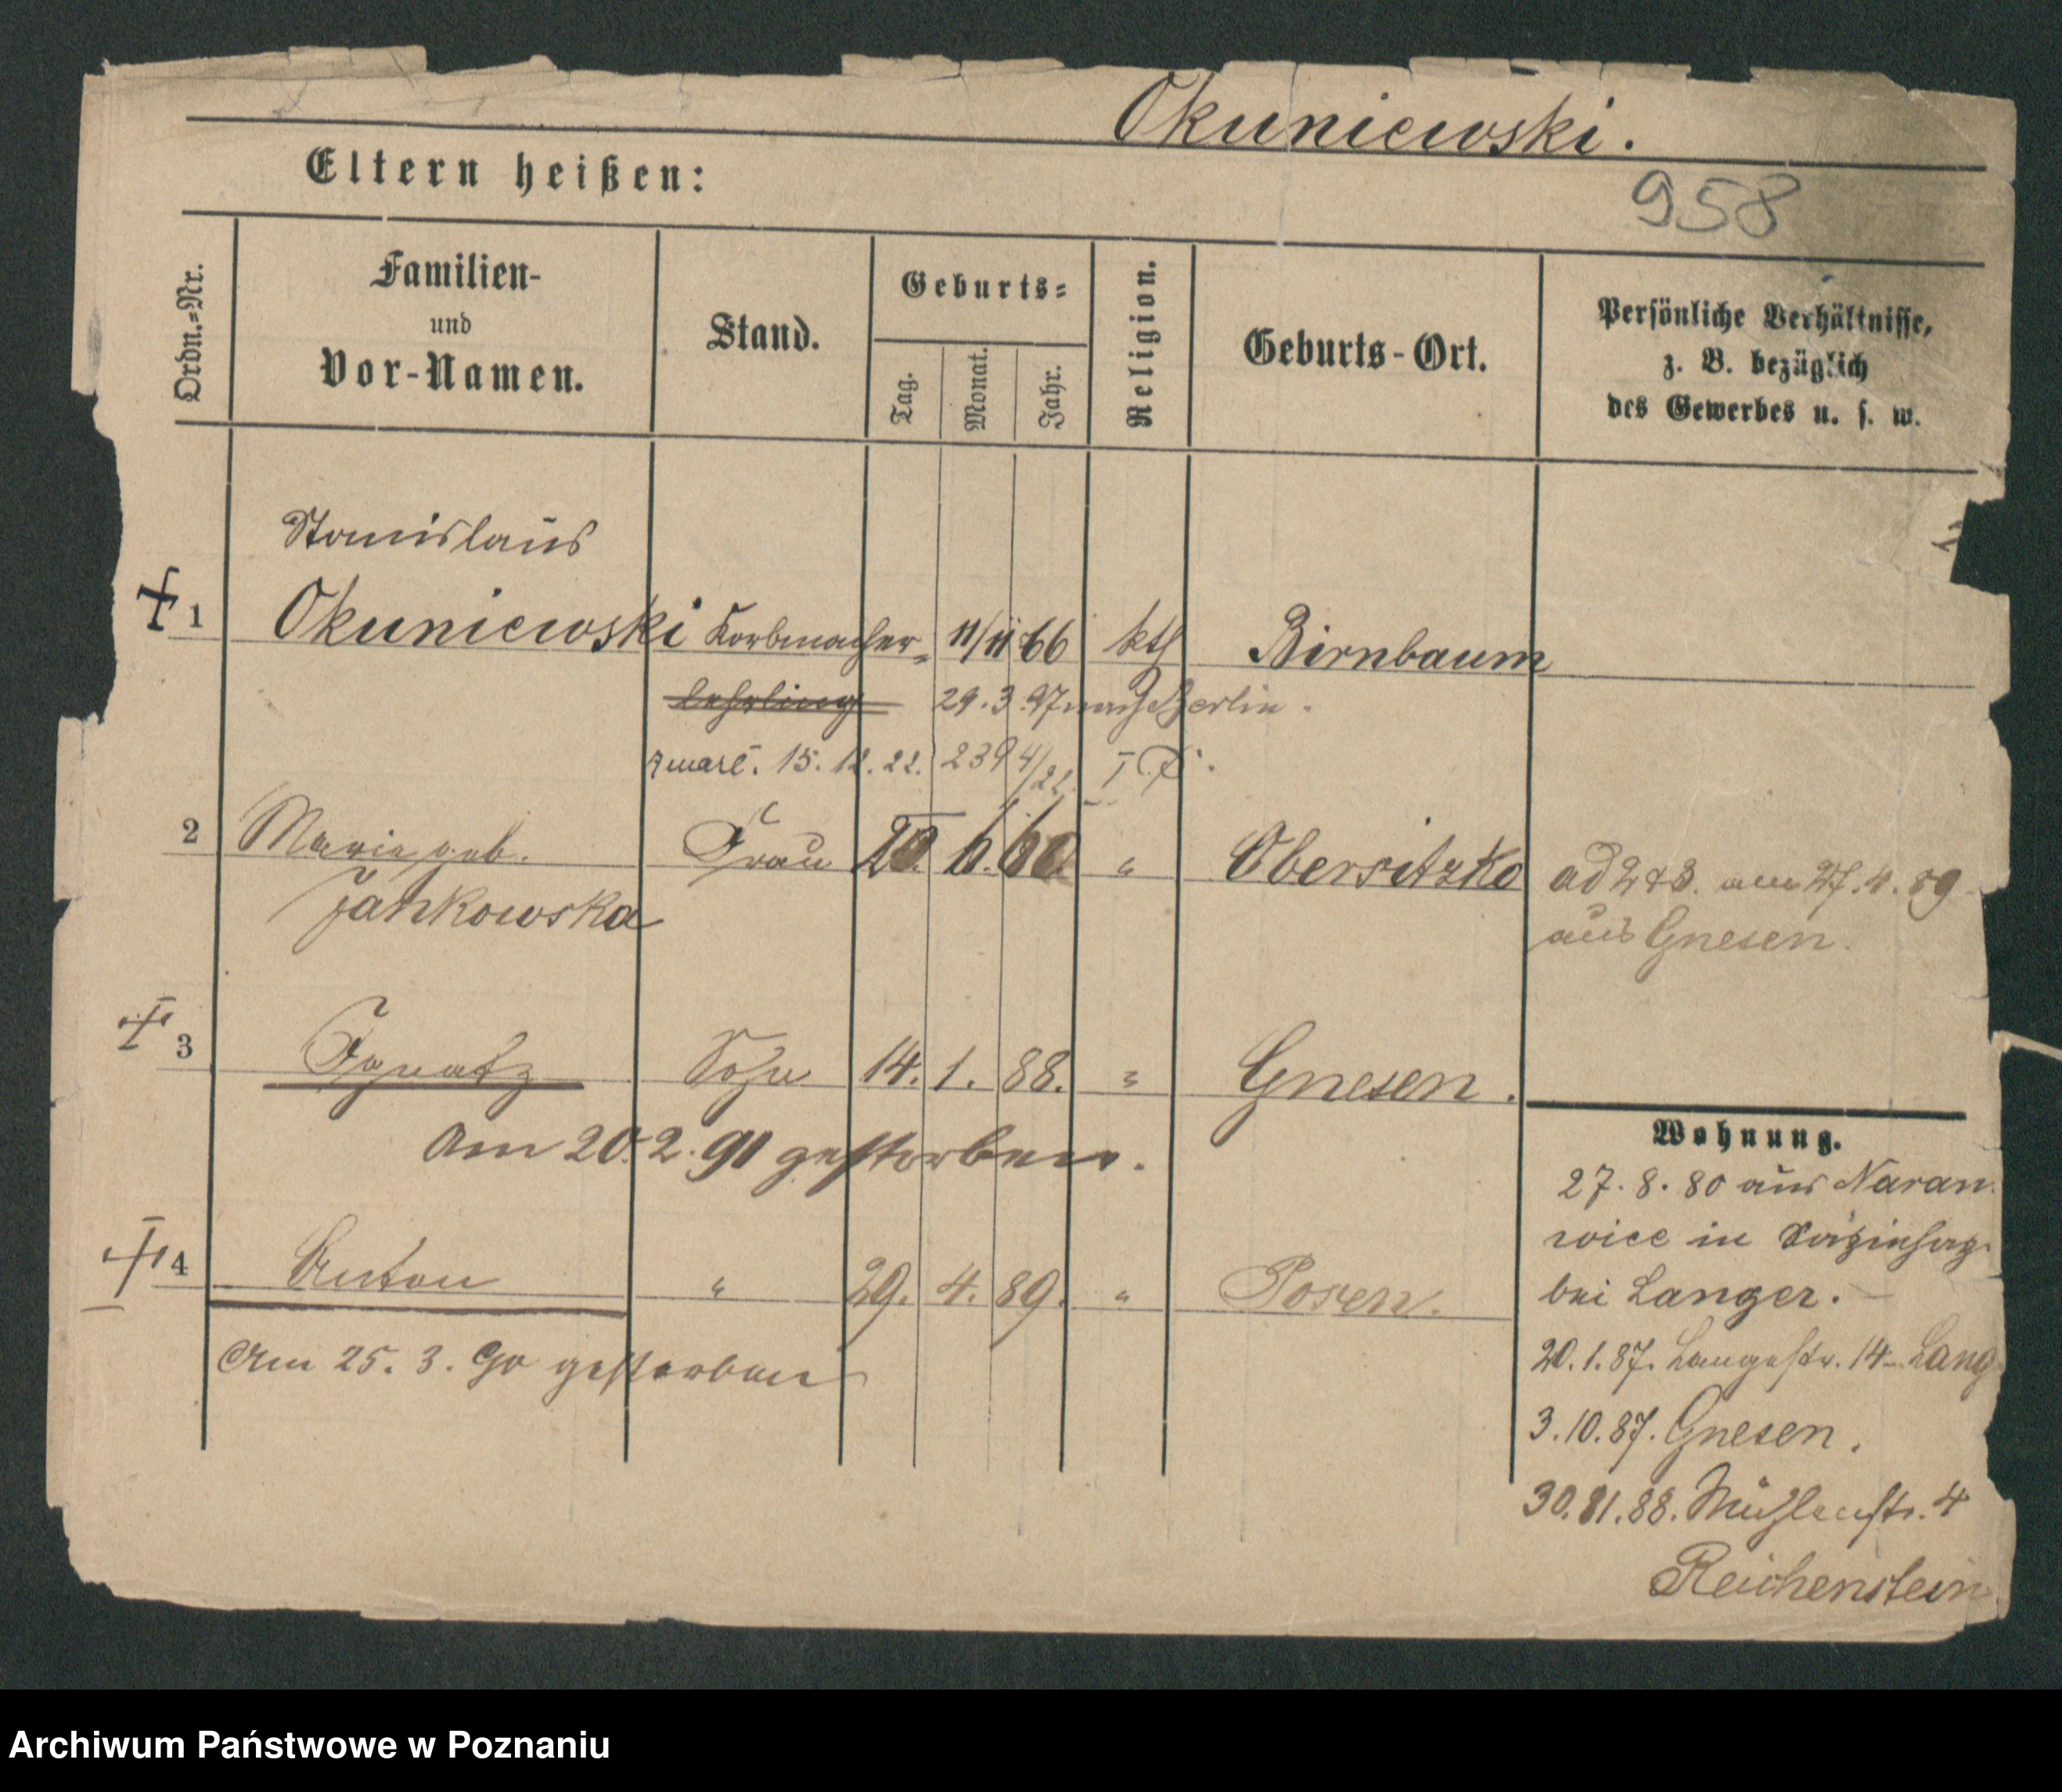 Okuniewski.
Eltern heißen:
958
Ordn.=Nr.
Familien-
und
Vor-Namen.
Stand.
Geburts=
Tag.
Monat.
Jahr.
Religion.
Geburts-Ort.
Persönliche Verhältnisse,
z. B. bezüglich
des Gewerbes u. s. w.
Stanislaus
1 Okuniewski Korbmacher 11/11 66 kth Birnbaum
lehrling 29.3.97 nach Berlin.
zmarł. 15.12.22. 2394/22.
2 Marie geb. Frau 20. 6. 60. " Obersitzko ad 2 & 3. am 27.4.89
Jankowska aus Gnesen.
3 Ignatz Sohn 14. 1. 88. " Gnesen.
Am 20.2.91 gestorben.
4 Anton " 29. 4. 89. " Posen.
Am 25.3.90 gestorben
Wohnung.
27.8.80 aus Naran
wice in
bei Langer.
20.1.87. Langestr. 14 Lang
3.10.87. Gnesen.
88. Mühlenstr. 4
Reichenstein
Archiwum Państwowe w Poznaniu